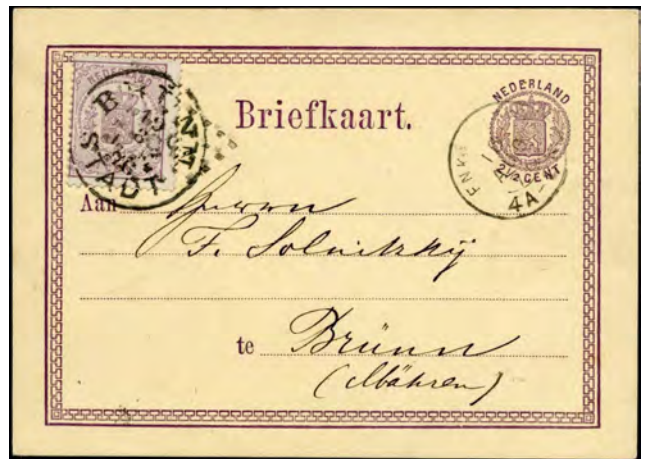 NEDERLAND
BRÜNN
STADT
Briefkaart.
NEDERLAND
2½ CENT
4A
Aan Herrn
F. Solnitzky
te Brünn
(Mähren)